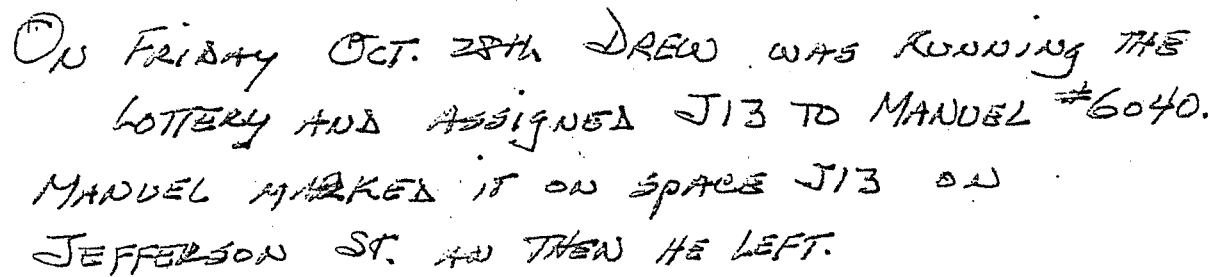 ON FRIDAY OCT. 28th DREW WAS RUNNING THE
LOTTERY AND ASSIGNED J13 TO MANUEL #6040.
MANUEL MARKED IT ON SPACE J13 ON
JEFFERSON ST. AN THEN HE LEFT.